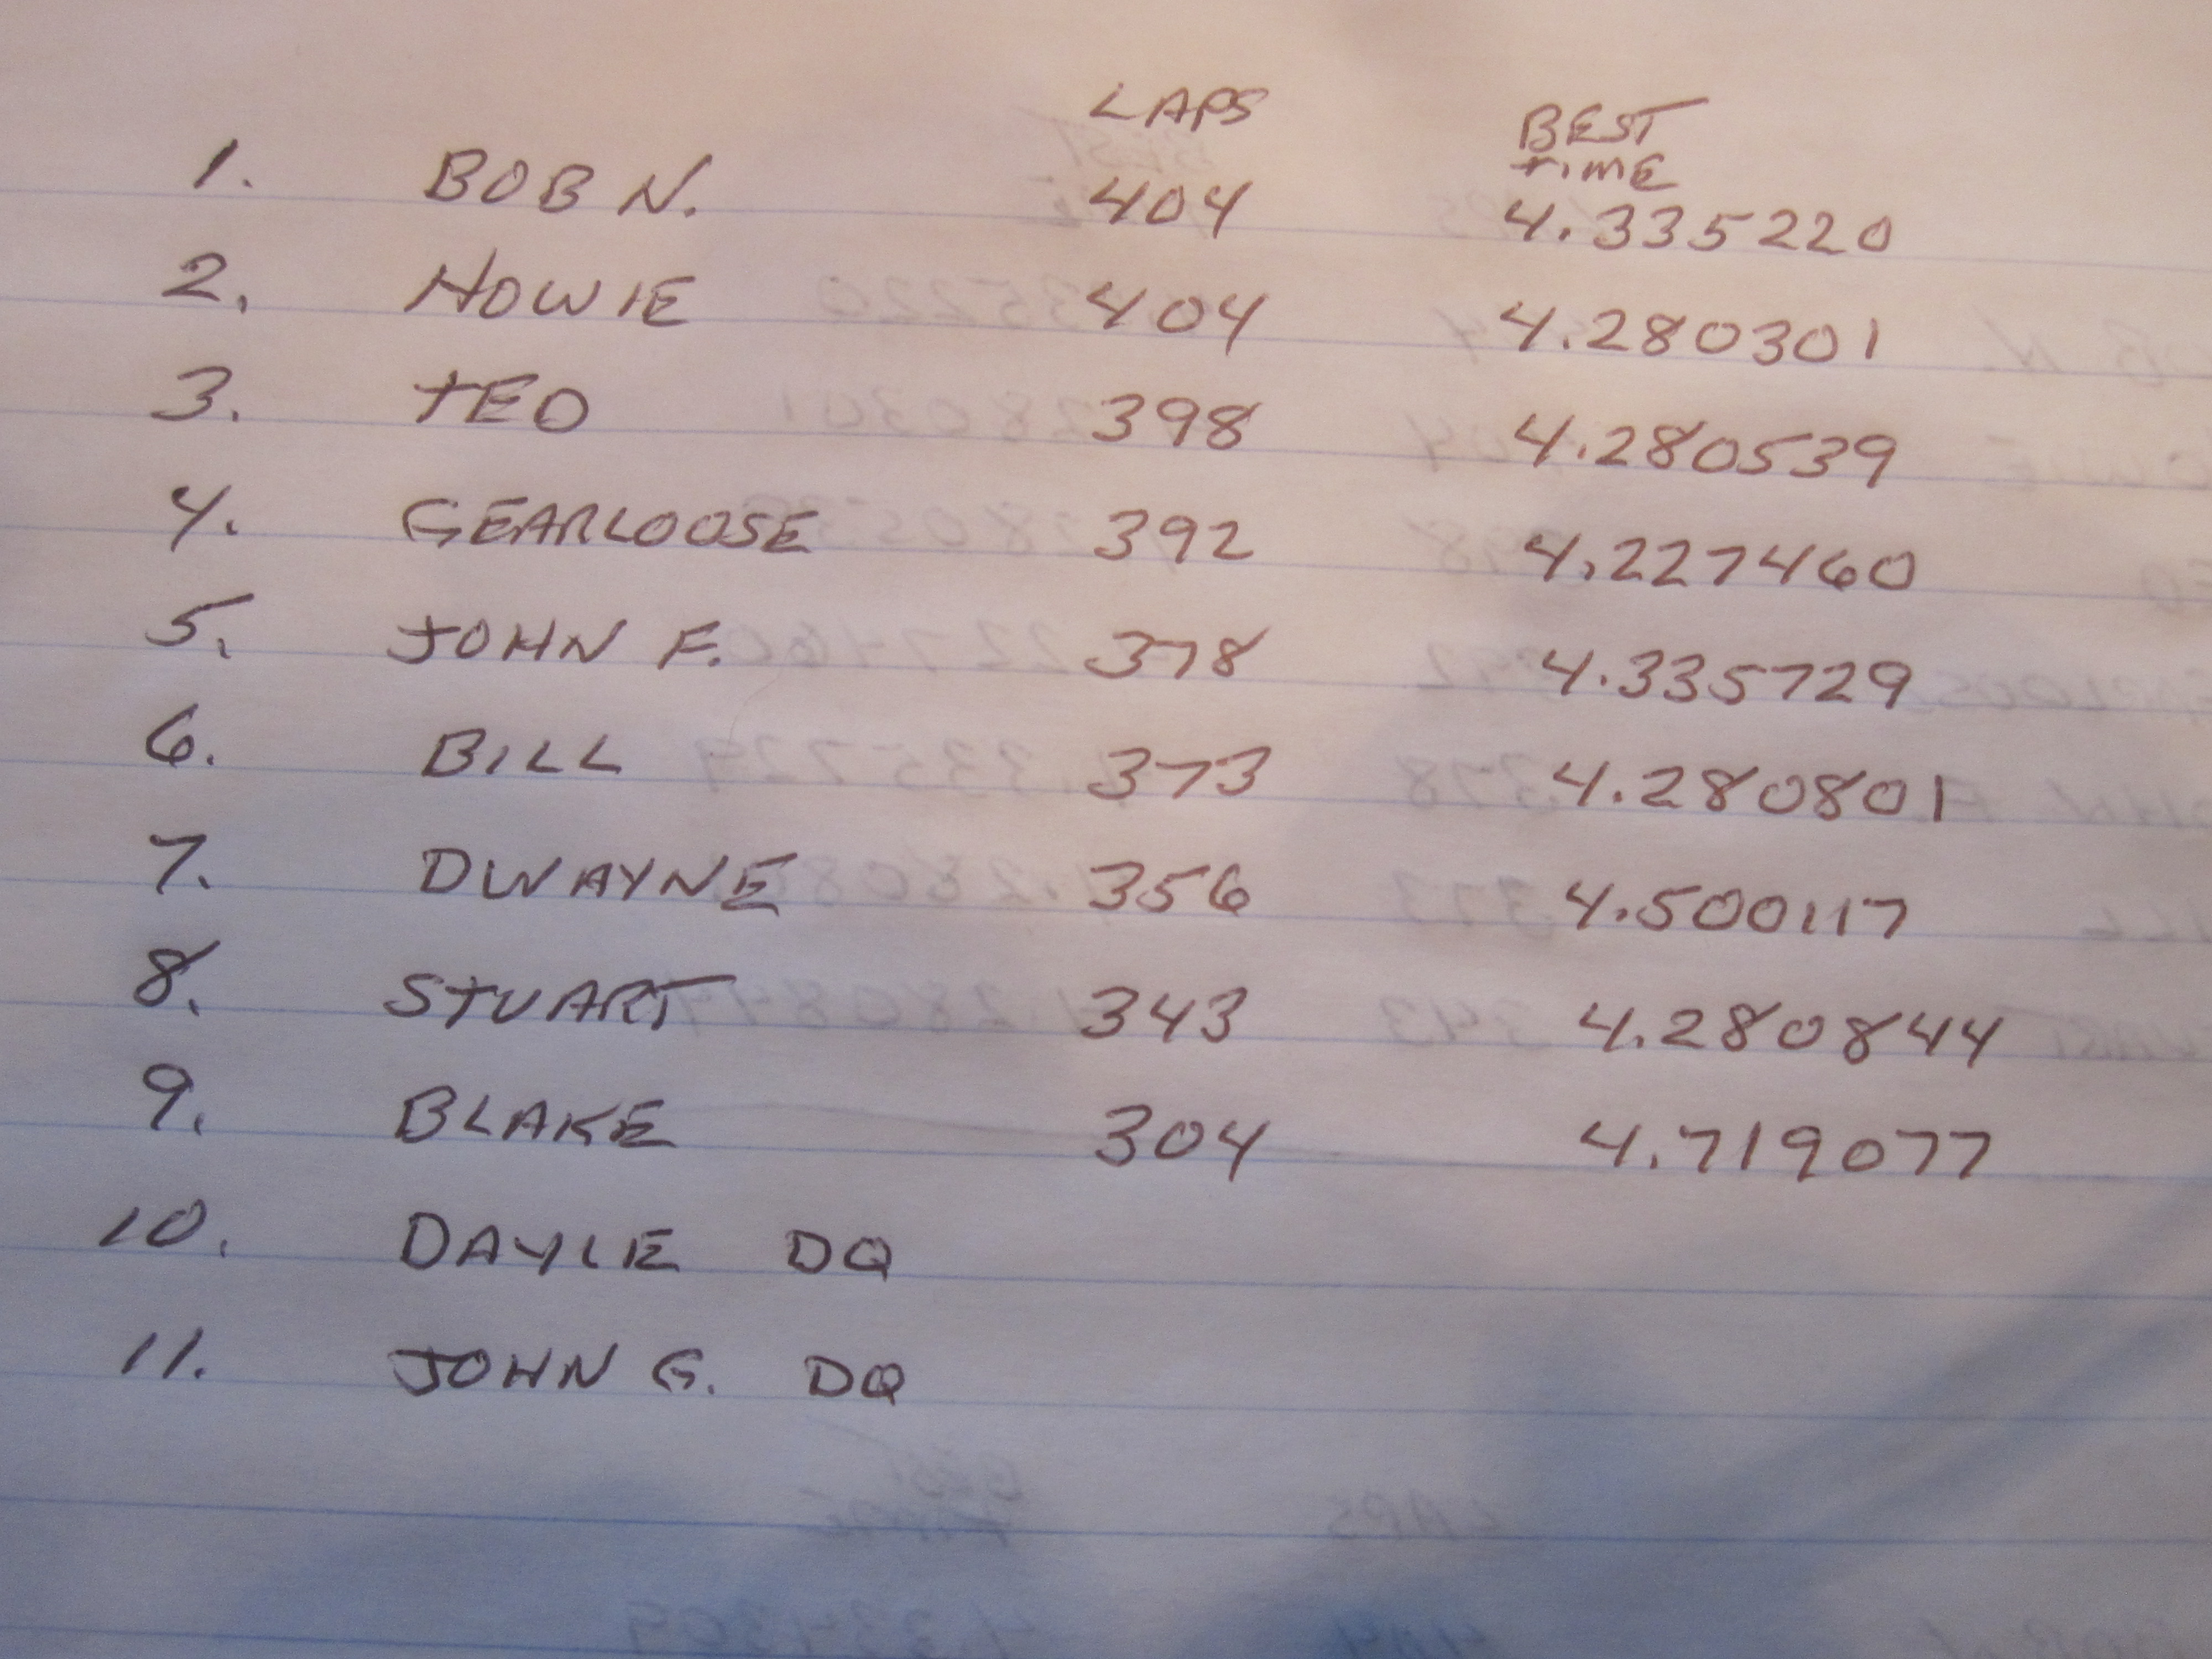 LAPS BEST
TIME
1. BOB N. 404 4.335220
2. HOWIE 404 4.280301
3. TED 398 4.280539
4. GEARLOOSE 392 4.227460
5. JOHN F. 378 4.335729
6. BILL 373 4.280801
7. DWAYNE 356 4.500117
8. STUART 343 4.280844
9. BLAKE 304 4.719077
10. DAYLE DQ
11. JOHN G. DQ